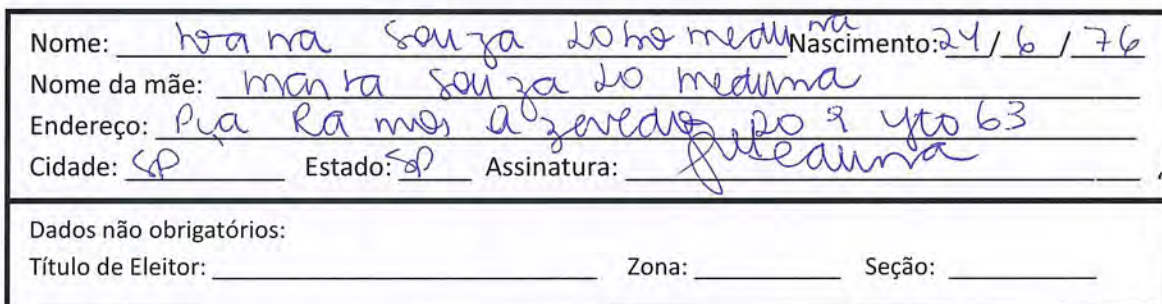 Nome: souza Lobo medunna Nascimento: 24/6/76
Nome da mãe: souza Lo medunna
Endereço: Pça Ramos Azevedo 209 63
Cidade: SP Estado: SP Assinatura:
Dados não obrigatórios:
Título de Eleitor: Zona: Seção: